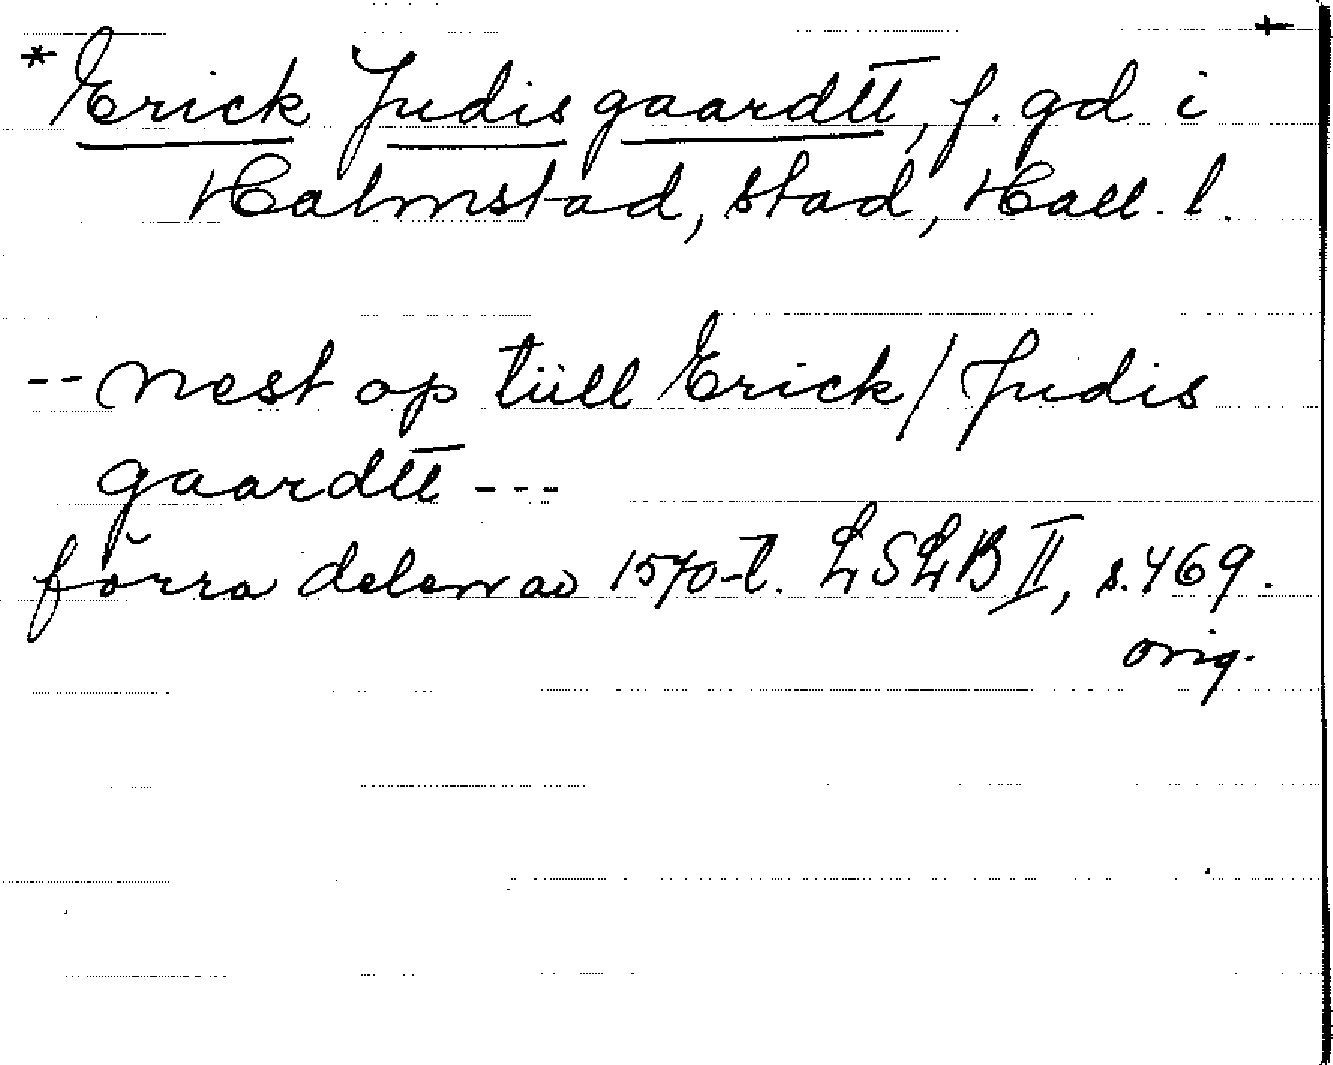 * Erick Judis gaardtt, f. gd i
Halmstad, stad, Hall. l.
-- nest op tüll Erick / Judis
gaardtt ---
förra delen av 1570-t. LSLB II, s. 469.
orig.